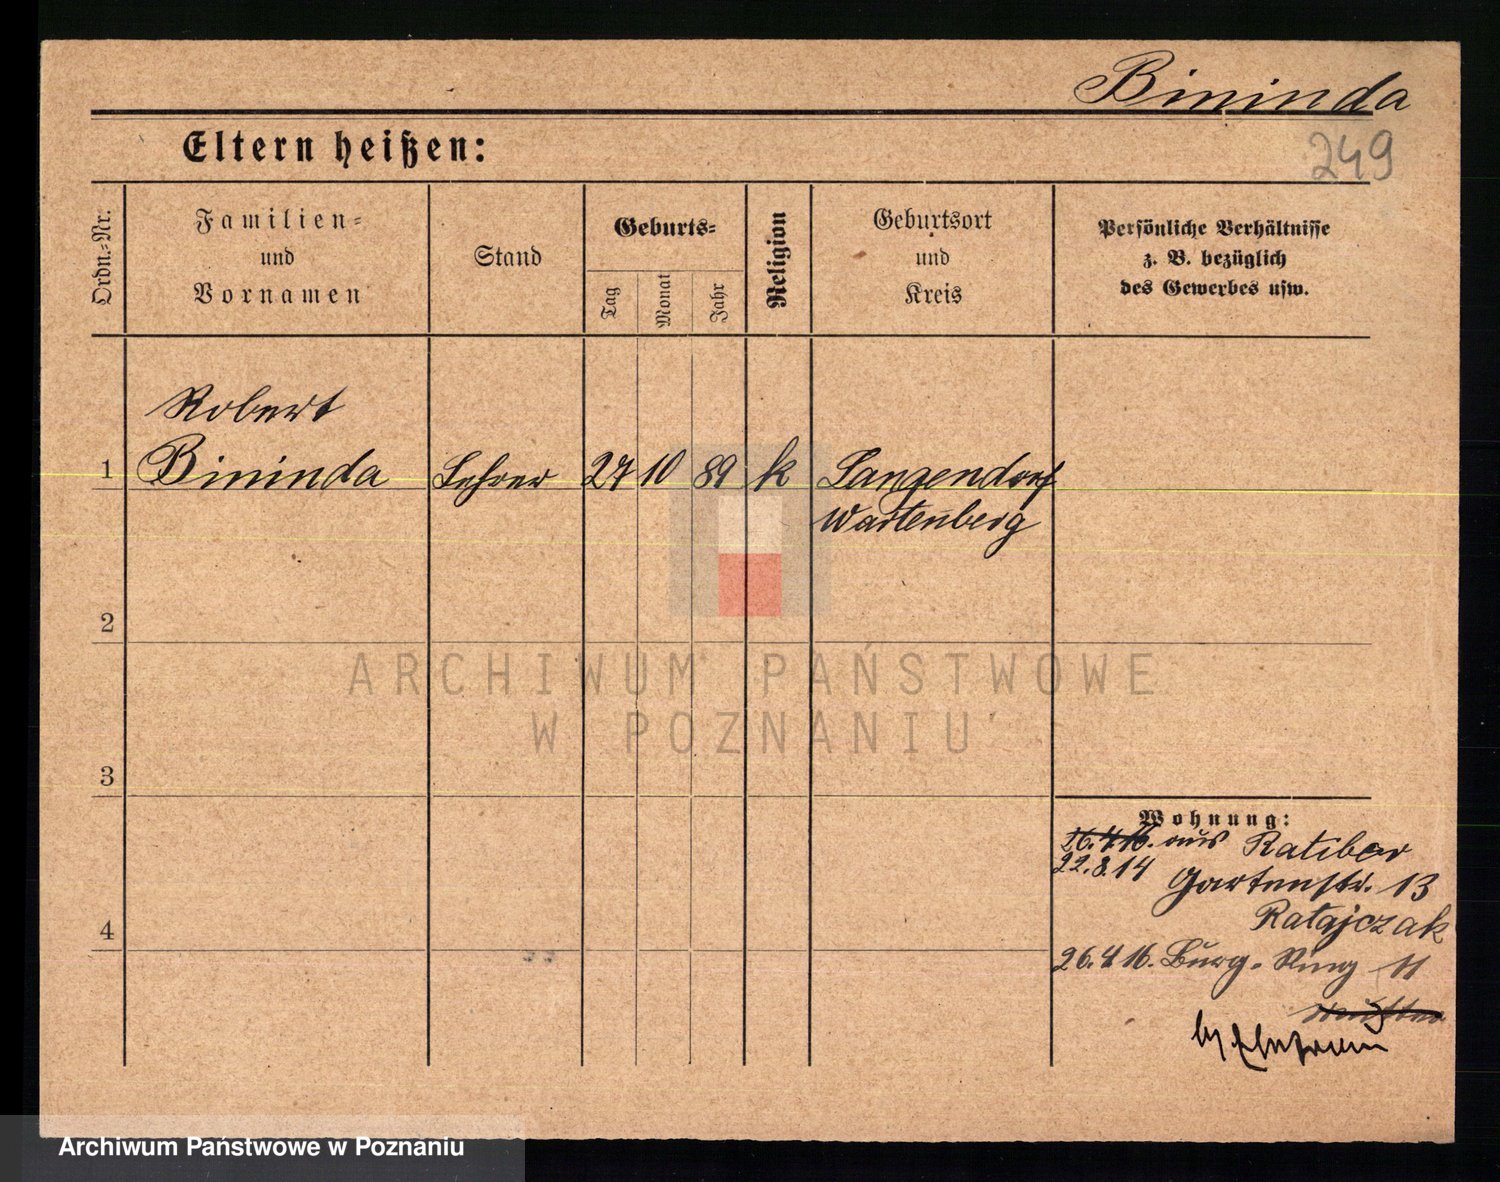 Bininda
249
Eltern heißen:
Ordn.-Nr.
Familien-
und
Vornamen
Stand
Geburts-
Tag
Monat
Jahr
Religion
Geburtsort
und
Kreis
Persönliche Verhältnisse
z. B. bezüglich
des Gewerbes usw.
Robert
1 Bininda Lehrer 27 10 89 k Langendorf
Wartenberg
2
3
4
Wohnung:
26.4.16. aus Ratibor
22.8.14 Gartenstr. 13
Ratajczak
26.4.16. Burg-Ring 11
by
ARCHIWUM PAŃSTWOWE
W POZNANIU
Archiwum Państwowe w Poznaniu